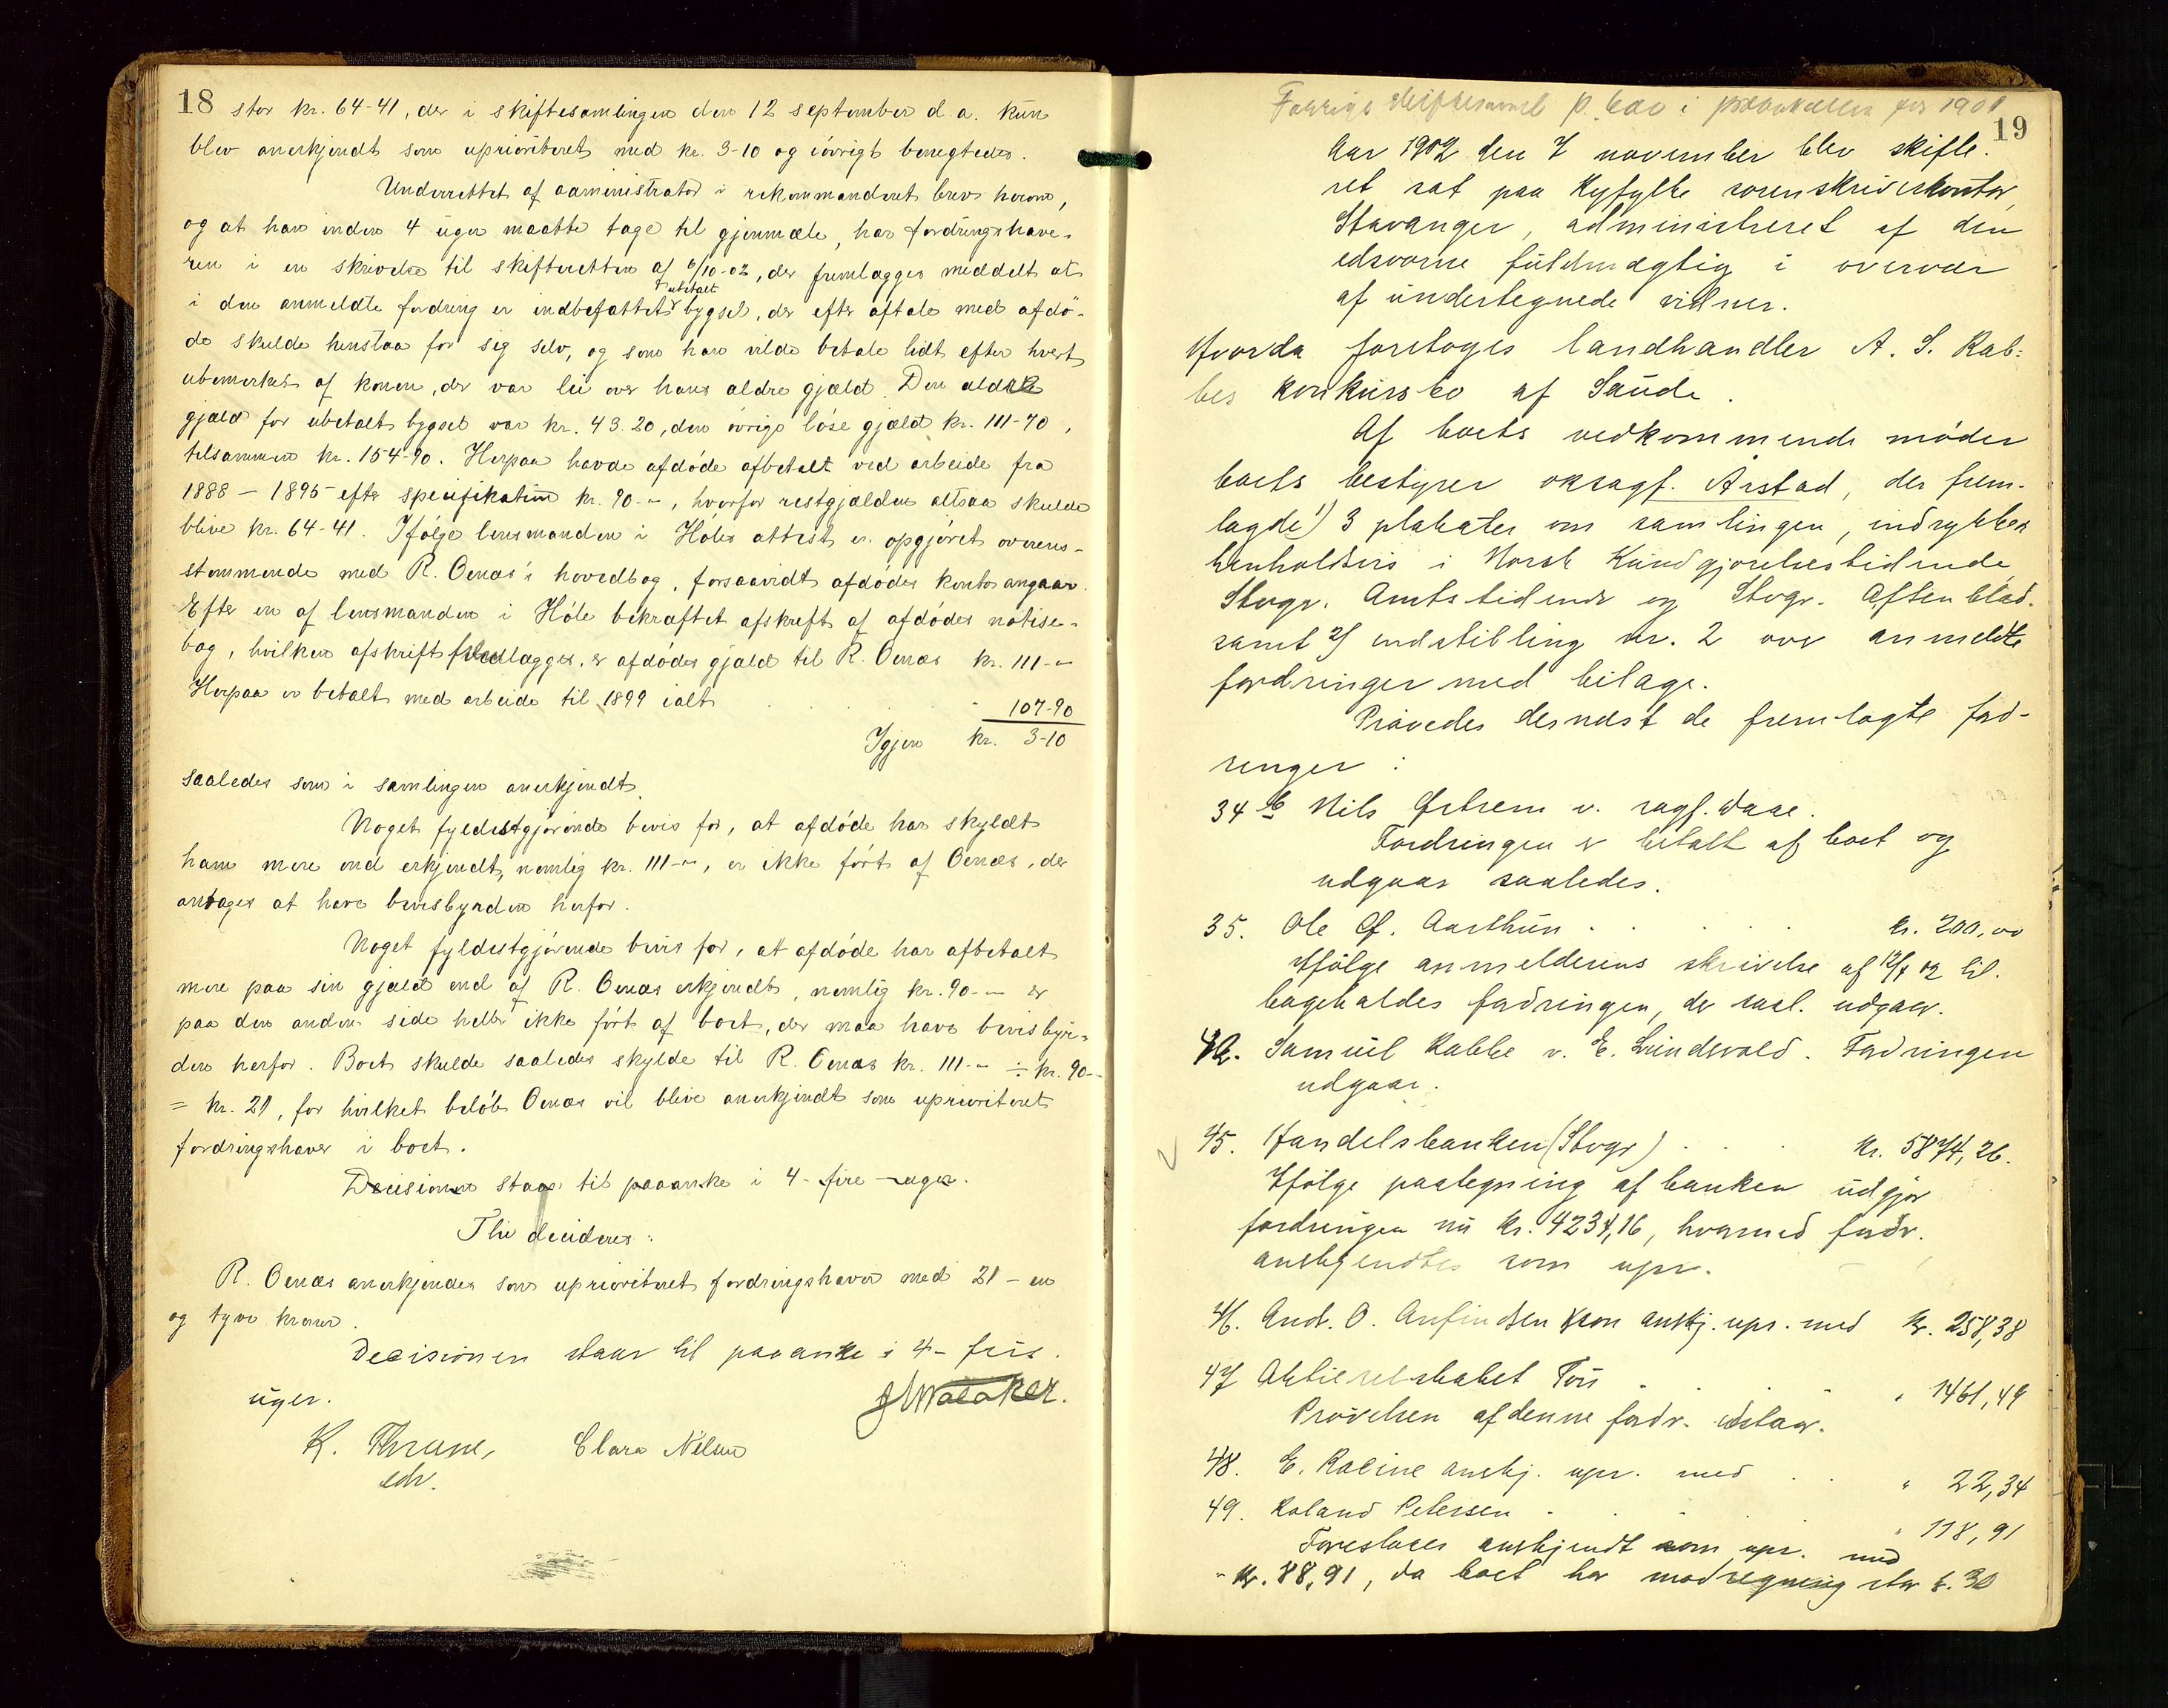 18 stor kr. 64-41, der i skiftesamlingen den 12 september d.a. kun
blev anerkjendt som uprioriteret med kr. 3-10 og iøvrigt benegtedes.
Underrettet af administrator i rekommanderet brev herom,
og at han inden 4 uger maatte tage til gjenmæle, har fordringshave-
ren i en skrivelse til skifteretten af 6/10-02, der fremlægges meddelt at
i den anmeldte fordring er indbefattet ubetalt bygsel, der efter aftale med afdø-
de skulde henstaa for sig selv, og som han vilde betale lidt efter hvert
ubemerket af konen, der var lei over hans ældre gjæld. Den ældre
gjæld for ubetalt bygsel var kr. 43.20, den øvrige løse gjæld kr. 111-70,
tilsammen kr. 154-90. Herpaa havde afdøde afbetalt ved arbeide fra
1888 - 1895 efter specifikation kr. 90-", hvorfor restgjælden altsaa skulde
blive kr. 64-41. Ifølge lensmanden i Høles attest er opgjøret overens-
stemmende med R. Oenæs's hovedbog, forsaavidt afdødes konto angaar.
Efter en af lensmanden i Høle bekræftet afskrift af afdødes notise-
bog, hvilken afskrift fremlægges, er afdødes gjæld til R. Oenæs kr. 111-"
Herpaa er betalt med arbeide til 1899 ialt 107-90
Igjen kr. 3-10
saaledes som i samlingen anerkjendt.
Noget fyldestgjørende bevis for, at afdøde har skyldt
ham mere end erkjendt, nemlig kr. 111-", er ikke ført af Oenæs, der
antages at have bevisbyrden herfor.
Noget fyldestgjørende bevis for, at afdøde har afbetalt
mere paa sin gjæld end af R. Oenæs erkjendt, nemlig kr. 90-" er
paa den anden side heller ikke ført af boet, der maa have bevisbyr-
den herfor. Boet skulde saaledes skylde til R. Oenæs kr. 111-" ÷ kr. 90-"
= kr. 21, for hvilket beløb Oenæs vil blive anerkjendt som uprioriteret
fordringshaver i boet.
Decisionen staar til paaanke i 4 - fire - uger.
Thi decideres:
R. Oenæs anerkjendes som uprioriteret fordringshaver med 21 - en
og tyve kroner.
Decisionen staar til paaanke i 4 - fire.
uger.
K. Thrane, Clara Nilsen
edv.
Forrige skiftesamml p. i protokollen for 1901
19
Aar 1902 den 7 november blev skifte-
ret sat paa Ryfylke sorenskriverkontor,
Stavanger, administreret af den
edsvorne fuldmægtig i overvær
af undertegnede vidner.
Hvorda foretoges landhandler A. S. Rab-
bes konkursbo af Saude.
Af boets vedkommende møder
boets bestyrer oksagf. Arstad, der frem-
lagde 1) 3 plakater om samlingen, indrykket
henholdsvis i Norsk Kundgjørelsestidende,
Stvgr. Amtstidende og Stvgr. Aftenblad.
samt 2) indstilling nr. 2 over anmeldte
fordringer med bilage.
Prøvedes dernæst de fremlagte ford-
ringer:
34 b Nils Østrem v. sagf. Daae.
Fordringen er betalt af boet og
udgaar saaledes.
35. Ole G. Aarthun kr. 200,00
Ifølge anmelderens skrivelse af 12/7 02 til-
bageholdes fordringen, der saal. udgaar.
42. Samuel Rabbe v. E. Lundsvold. Fordringen
udgaar.
45. Handelsbanken (Stvgr) kr. 5874,26.
Ifølge paategning af banken udgjør
fordringen nu kr. 4234,16, hvormed fordr.
anerkjendtes som upr.
46. And. O. Anfindsen søn anerkj. upr. med kr. 258,38
47 Aktieselskabet Tou " 1461,49
Prøvelsen af denne fordr. udstaar.
48. E. Racine anerkj. upr. med " 22,34
49. Roland Petersen " 118,91
Foreslaaes anerkjendt som upr. med
kr. 88,91, da boet har modregning stor k. 30